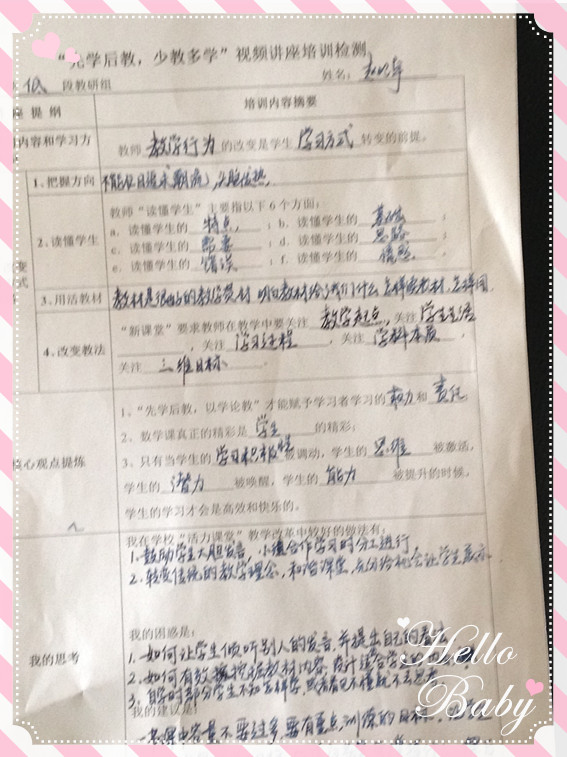 “先学后教，少教多学”视频讲座培训检测
低 段教研组 姓名：
提纲 培训内容摘要
内容和学习方 教师 教学行为 的改变是学生 学习方式 转变的前提。
1、把握方向
2、读懂学生 教师“读懂学生”主要指以下6个方面：
a．读懂学生的 特点 ； b．读懂学生的 基础 ；
c．读懂学生的 需要 ； d．读懂学生的 思路 ；
e．读懂学生的 错误 ； f．读懂学生的 情感 ；
3、用活教材 教材是很好的教学资材，明白教材给我们什么，怎样 教材，怎样用
4、改变教法 “新课堂”要求教师在教学中要关注 教学起点，关注 学生生活
，关注 学习过程 ，关注 学科本质 ，
关注 三维目标 。
核心观点提炼 1、“先学后教，以学论教”才能赋予学习者学习的 权力 和 责任
2、数学课真正的精彩是 学生 的精彩；
3、只有当学生的 学习积极性 被调动，学生的 思维 被激活，
学生的 潜力 被唤醒，学生的 能力 被提升的时候，
学生的学习才会是高效和快乐的。
我的思考 我在学校“活力课堂”教学改革中较好的做法有：
1、鼓励学生大胆发言，小组合作学习时分工进行
2、转变传统的教学理念，和谐课堂，充分给机会让学生展示．
我的困惑是：
1、如何让学生倾听别人的发言，并提出自己的看法
2、如何有效 教材内容，设计适合学生的
3、自学时部分学生不知怎样学，
我的建议是：
一堂课内容量不要过多，要有重点，训练的目标
Hello
Baby